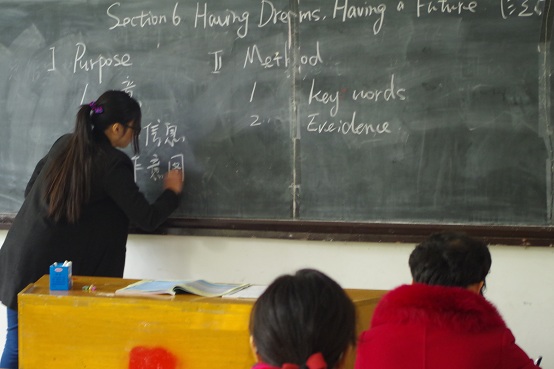 Section 6 Having Dreams, Having a Future
I Purpose
II Method
1 意
1 Key words
信息
2. Eveidence
作意图